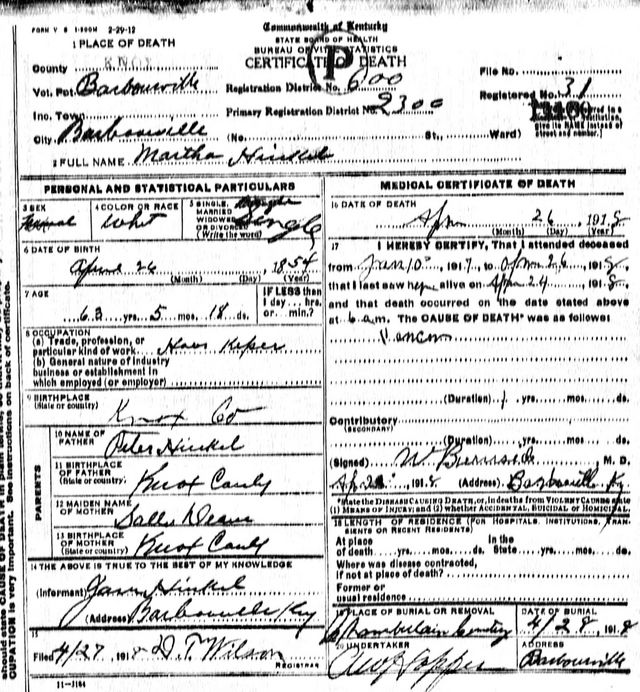 FORM V S 1-500M 2-29-12
Commonwealth of Kentucky
STATE BOARD OF HEALTH
BUREAU OF VITAL STATISTICS
CERTIFICATE OF DEATH
P
1 PLACE OF DEATH
County KNOX
Vot. Pct. Barbourville
Inc. Town
City Barbourville (No. St., Ward)
Registration District No. 600
Primary Registration District No. 2300
File No.
Registered No. 31
give its NAME instead of street and number.]
2 FULL NAME Martha Hinkel
PERSONAL AND STATISTICAL PARTICULARS
3 SEX
4 COLOR OR RACE Whit
5 SINGLE, MARRIED WIDOWED OR DIVORCED (Write the word) Single
6 DATE OF BIRTH
26 1854
(Month) (Day) (Year)
7 AGE
63 yrs. 5 mos. 18 ds.
IF LESS than 1 day... hrs. or... min.?
8 OCCUPATION
(a) Trade, profession, or particular kind of work Hous Keper
(b) General nature of industry
business or establishment in
which employed (or employer)
9 BIRTHPLACE
(State or country) Knox Co
PARENTS
10 NAME OF FATHER Peter Hinkel
11 BIRTHPLACE OF FATHER
(State or country) Knox County
12 MAIDEN NAME OF MOTHER Sallie
13 BIRTHPLACE OF MOTHER
(State or country) Knox County
14 THE ABOVE IS TRUE TO THE BEST OF MY KNOWLEDGE
(Informant) Hinkel
(Address) Barbourville Ky
15
Filed 4/27, 1918 D. T. Wilson
REGISTRAR
11-3184
MEDICAL CERTIFICATE OF DEATH
16 DATE OF DEATH
26 1918
(Month) (Day) (Year)
17 I HEREBY CERTIFY, That I attended deceased
from 10, 1917, to 26, 1918,
that I last saw her alive on 24, 1918,
and that death occurred on the date stated above
at 6 a.m. The CAUSE OF DEATH* was as follows:
(Duration) 1 yrs. mos. ds.
Contributory
(SECONDARY)
(Duration) yrs. mos. ds.
(Signed) W Burnside M. D.
1918 (Address) Barbourville Ky
*State the DISEASE CAUSING DEATH, or, in deaths from VIOLENT CAUSES state
(1) MEANS OF INJURY; and (2) whether ACCIDENTAL, SUICIDAL or HOMICIDAL.
18 LENGTH OF RESIDENCE (FOR HOSPITALS, INSTITUTIONS, TRANSIENTS OR RECENT RESIDENTS)
At place of death... yrs... mos... ds. In the State... yrs... mos... ds.
Where was disease contracted,
if not at place of death?
Former or
usual residence
19 PLACE OF BURIAL OR REMOVAL
Chamberlain Cemetery
DATE OF BURIAL
4/28, 1918
20 UNDERTAKER
ADDRESS
Barbourville
CUPATION is very important. See instructions on back of certificate.